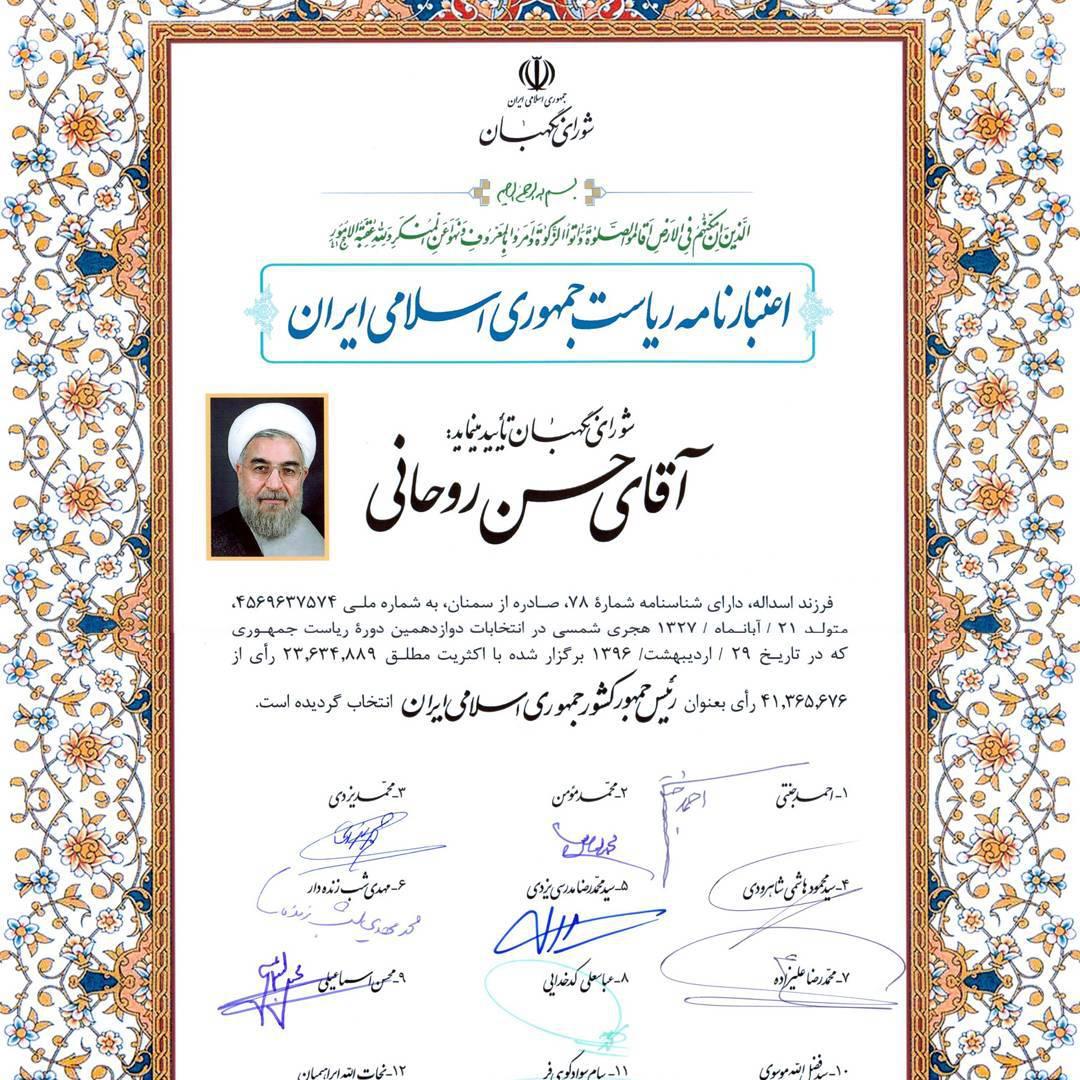 جمهوری اسلامی ایران
شورای نگهبان
بسم الله الرحمن الرحیم
الَّذینَ اِن مَکَّنّاهُم فِی الاَرضِ اَقامُوا الصَّلوةَ وَ ءاتَوُا الزَّکوةَ وَ اَمَروا بِالمَعروفِ وَ نَهَوا عَنِ المُنکَرِ وَ لِلّهِ عاقِبَةُ الاُمورِ
اعتبارنامه ریاست جمهوری اسلامی ایران
شورای نگهبان تأیید مینماید:
آقای حسن روحانی
فرزند اسداله، دارای شناسنامه شمارهٔ ۷۸، صادره از سمنان، به شماره ملی ۴۵۶۹۶۳۷۵۷۴،
متولد ۲۱ / آبانماه / ۱۳۲۷ هجری شمسی در انتخابات دوازدهمین دورهٔ ریاست جمهوری
که در تاریخ ۲۹ / اردیبهشت/ ۱۳۹۶ برگزار شده با اکثریت مطلق ۲۳,۶۳۴,۸۸۹ رأی از
۴۱,۳۶۵,۶۷۶ رأی بعنوان رئیس جمهور کشور جمهوری اسلامی ایران انتخاب گردیده است.
۱- احمد جنتی ۲- محمد مؤمن ۳- محمد یزدی
۴- سید محمود هاشمی شاهرودی ۵- سید محمدرضا مدرسی یزدی ۶- مهدی شب زنده دار
۷- محمدرضا علیزاده ۸- عباسعلی کدخدایی ۹- محسن اسماعیلی
۱۰- سید فضل الله موسوی ۱۱- سام سوادکوهی فر ۱۲- نجات الله ابراهیمیان